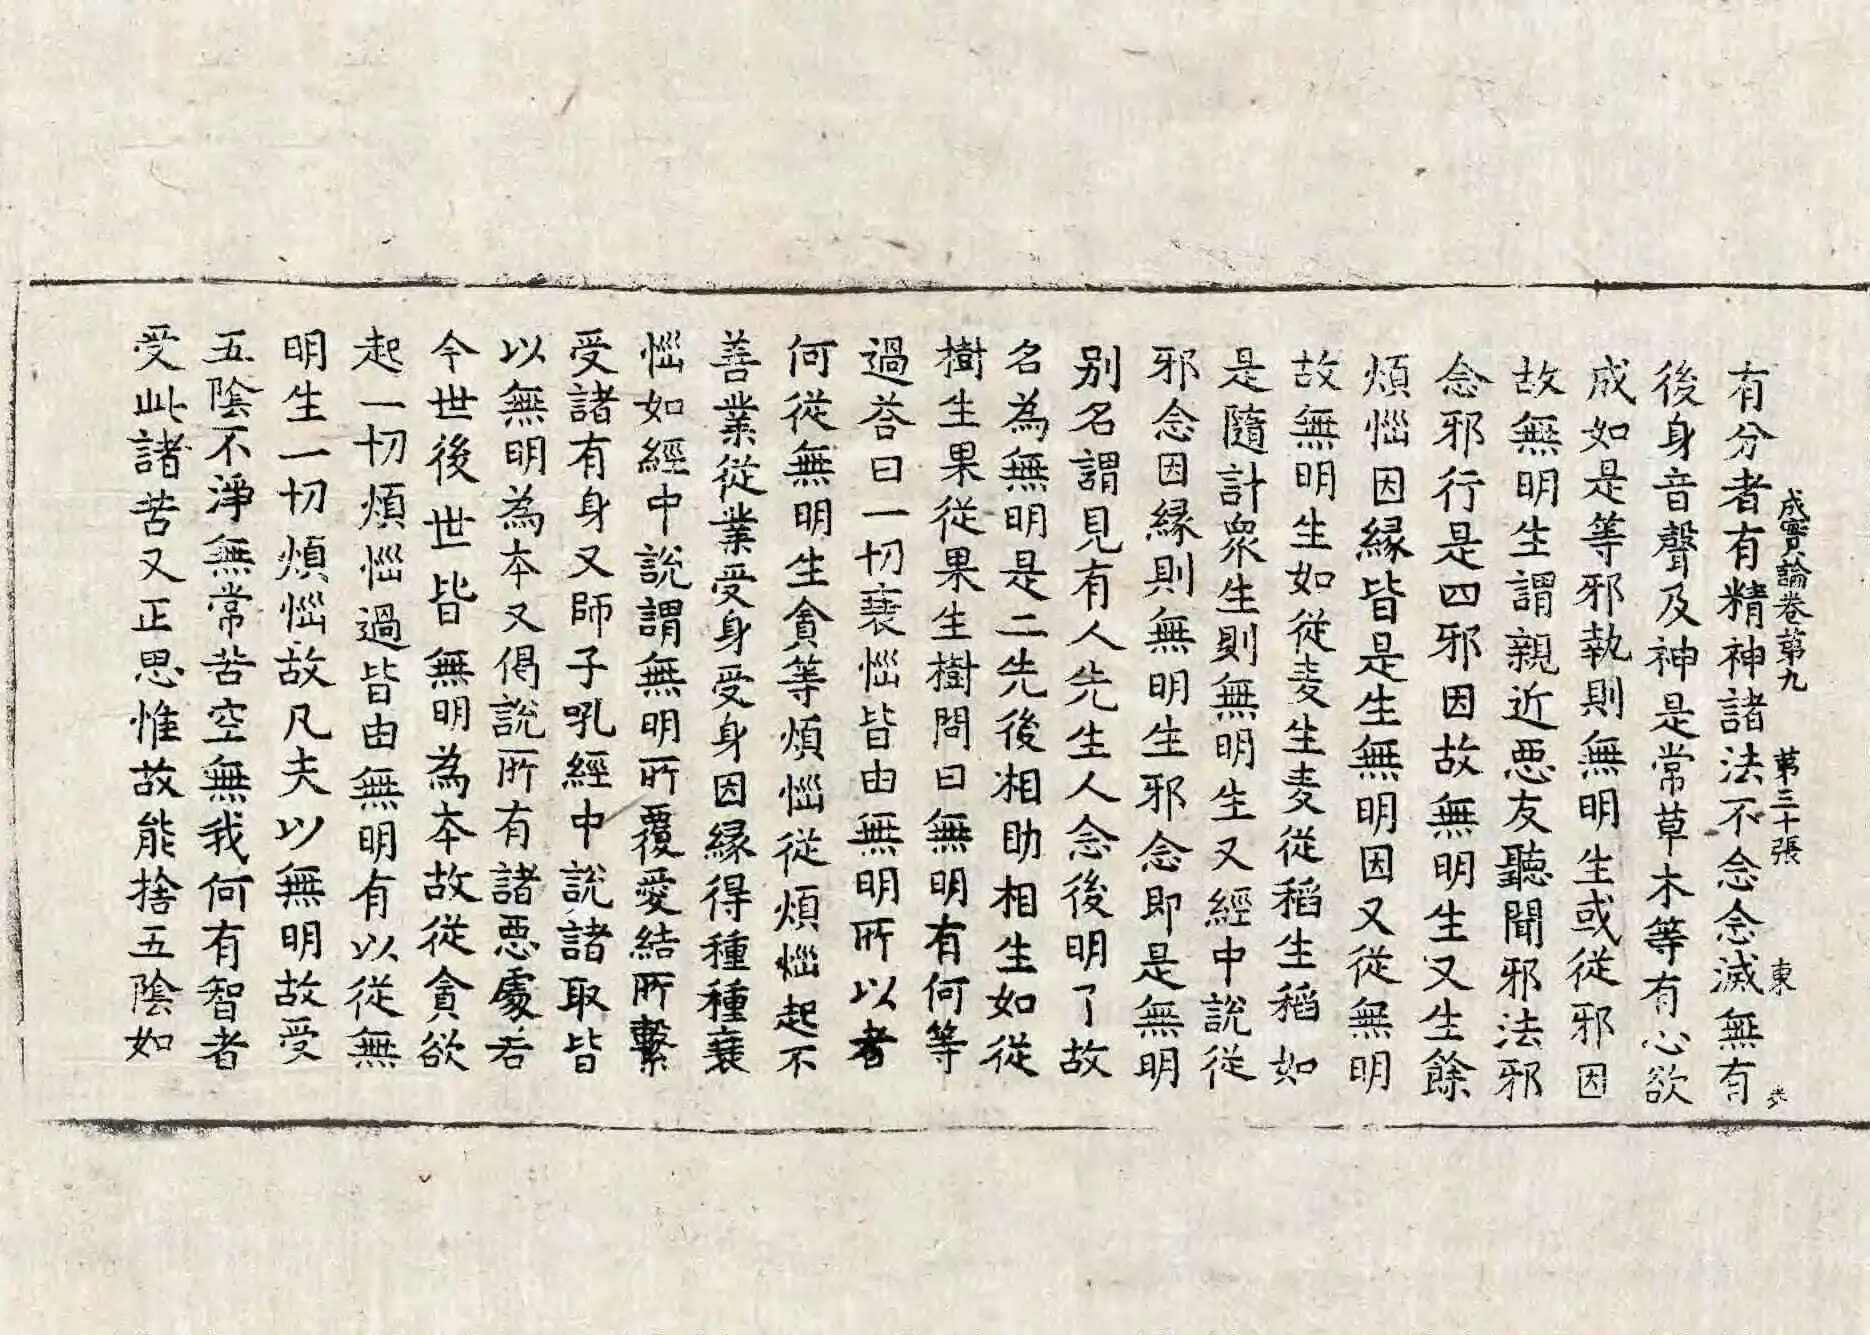 成實論卷第九　第三十張　東
有分者有精神諸法不念念滅無有
後身音聲及神是常草木等有心欲
成如是等邪執則無明生或從邪因
故無明生謂親近悪友聽聞邪法邪
念邪行是四邪因故無明生又生餘
煩惱因縁皆是生無明因又從無明
故無明生如從麦生麦從稻生稻如
是隨計衆生則無明生又經中說從
邪念因縁則無明生邪念即是無明
别名謂見有人先生人念後明了故
名為無明是二先後相助相生如從
樹生果從果生樹問曰無明有何等
過荅曰一切衰惱皆由無明所以者
何從無明生貪等煩惱從煩惱起不
善業從業受身受身因縁得種種衰
惱如經中說謂無明所覆愛結所繫
受諸有身又師子吼經中說諸取皆
以無明為本又偈說所有諸悪處若
今世後世皆無明為本故從貪欲
起一切煩惱過皆由無明有以從無
明生一切煩惱故凡夫以無明故受
五陰不淨無常苦空無我何有智者
受此諸苦又正思惟故能捨五陰如